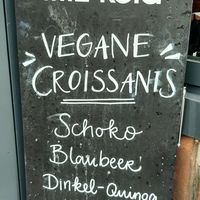 VEGANE
CROISSANTS
Schoko
Blaubeer
Dinkel-Quinoa